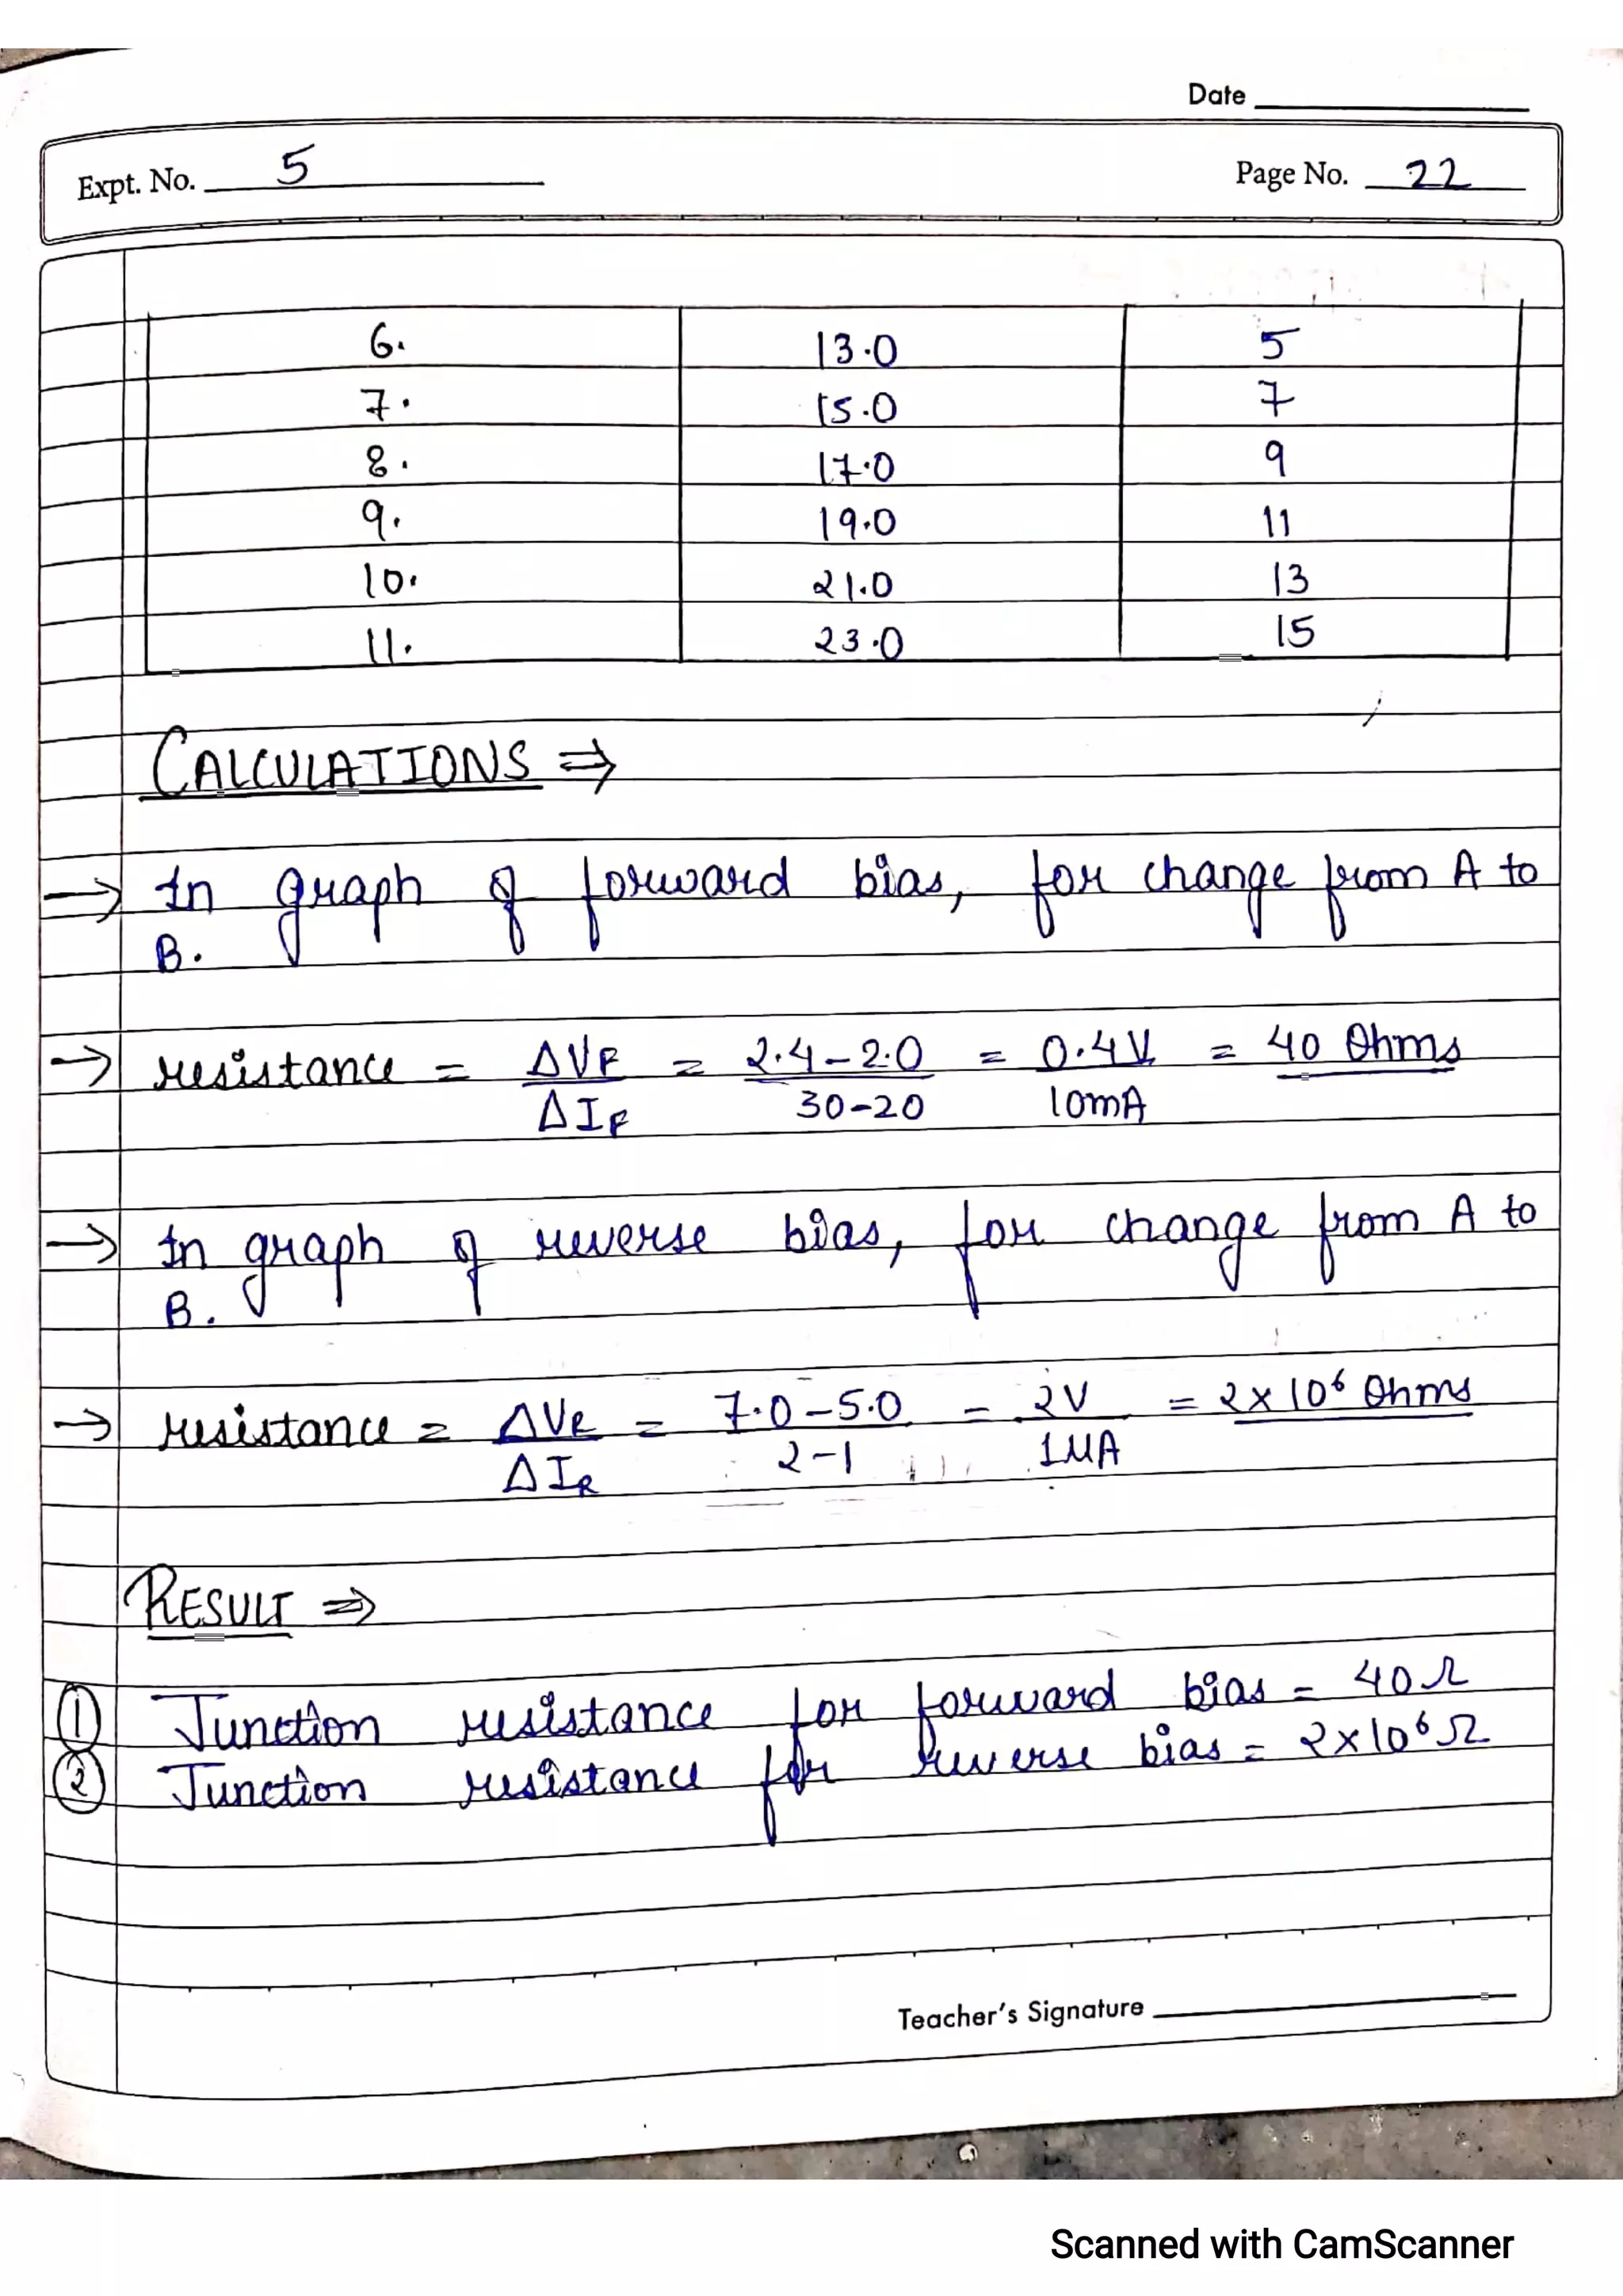 Date
Expt. No. 5
Page No. 22
6. 13.0 5
7. 15.0 7
8. 17.0 9
9. 19.0 11
10. 21.0 13
11. 23.0 15
CALCULATIONS ⇒
→ In graph of forward bias, for change from A to
B.
→ resistance = ΔVF / ΔIF = 2.4-2.0 / 30-20 = 0.4V / 10mA = 40 Ohms
→ In graph of reverse bias, for change from A to
B.
→ resistance = ΔVR / ΔIR = 7.0-5.0 / 2-1 = 2V / 1μA = 2x10⁶ Ohms
RESULT ⇒
① Junction resistance for forward bias = 40Ω
② Junction resistance for reverse bias = 2x10⁶Ω
Teacher's Signature
Scanned with CamScanner